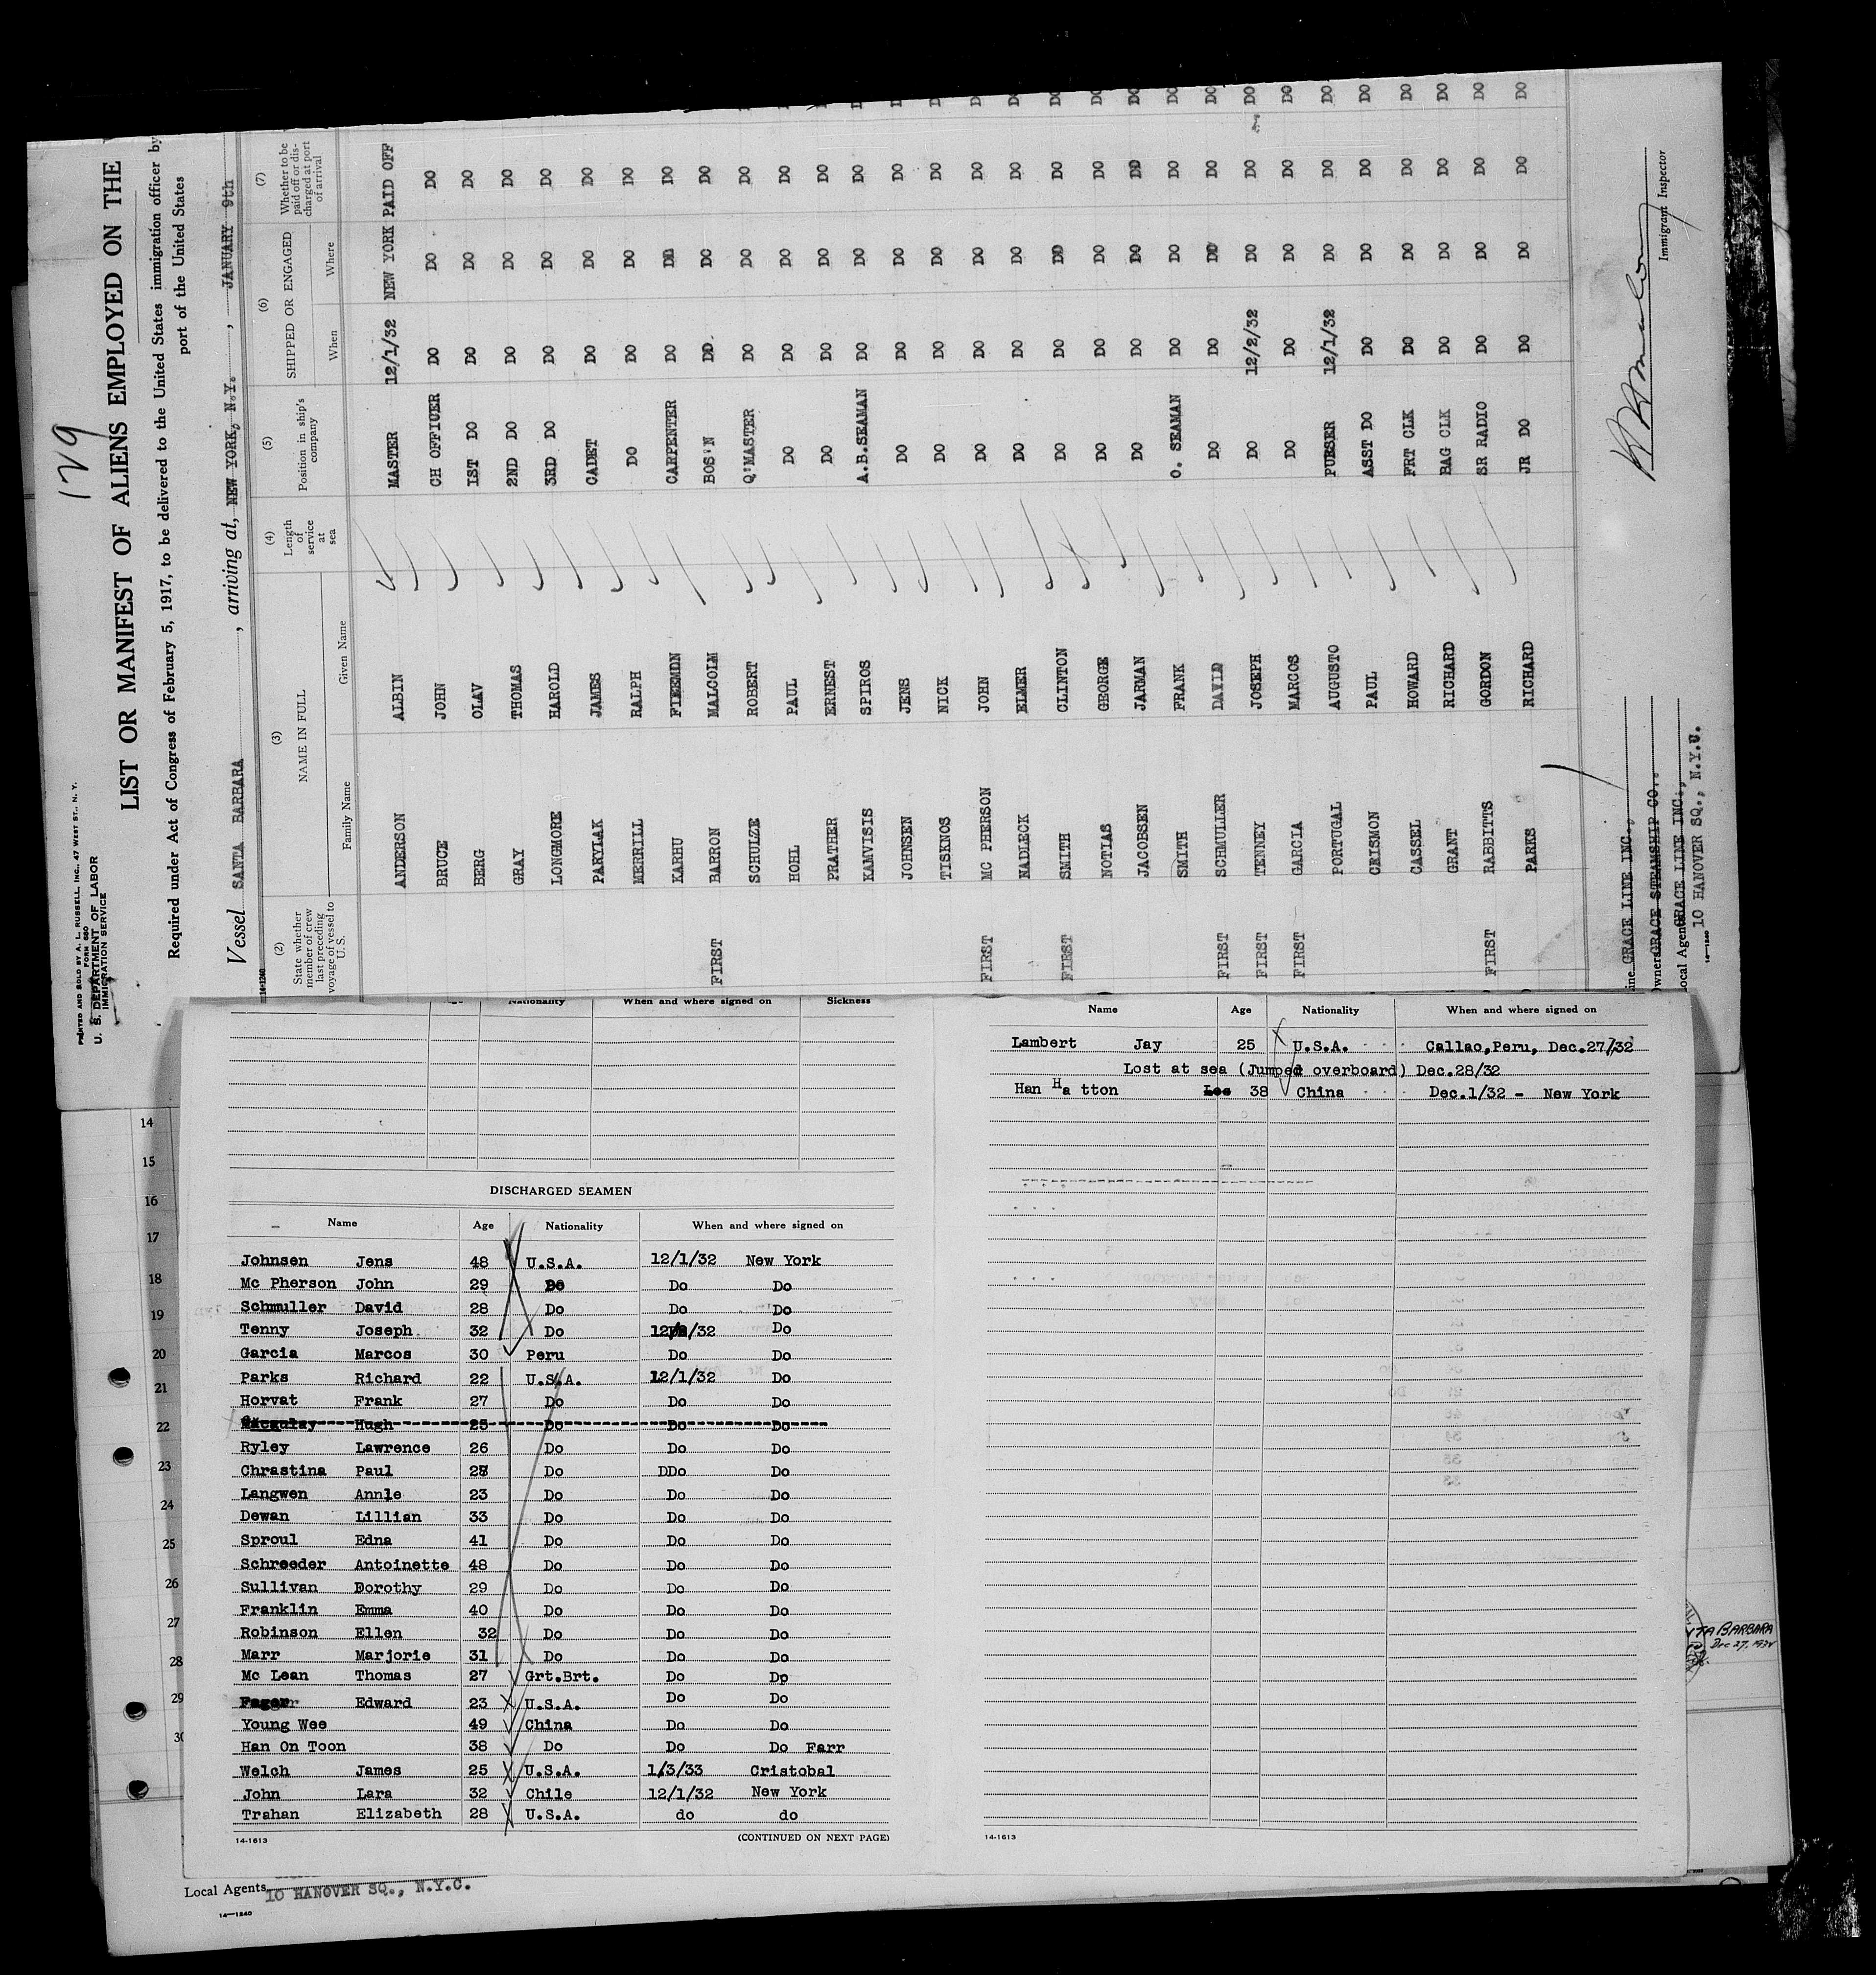 129
PRINTED AND SOLD BY A. L. RUSSELL, INC., 47 WEST ST., N. Y.
FORM 680
U. S. DEPARTMENT OF LABOR
IMMIGRATION SERVICE
LIST OR MANIFEST OF ALIENS EMPLOYED ON THE
Required under Act of Congress of February 5, 1917, to be delivered to the United States immigration officer by
port of the United States
Vessel SANTA BARBARA, arriving at, NEW YORK, N.Y., JANUARY 9th
14-1240
(2) (3) (4) (5) (6) (7)
State whether member of crew last preceding voyage of vessel to U. S. NAME IN FULL Length of service at sea Position in ship's company SHIPPED OR ENGAGED Whether to be paid off or discharged at port of arrival
Family Name Given Name When Where
ANDERSON ALBIN MASTER 12/1/32 NEW YORK PAID OFF
BRUCE JOHN CH OFFICER DO DO DO
BERG OLAV 1ST DO DO DO DO
GRAY THOMAS 2ND DO DO DO DO
LONGMORE HAROLD 3RD DO DO DO DO
PARYLAK JAMES CADET DO DO DO
MERRILL RALPH DO DO DO DO
KARHU CARPENTER DO DO DO
FIRST BARRON MALCOLM BOS'N DO DO DO
SCHULZE ROBERT Q'MASTER DO DO DO
HOHL PAUL DO DO DO DO
PRATHER ERNEST DO DO DO DO
KAMVISIS SPIROS A.B.SEAMAN DO DO DO
JOHNSEN JENS DO DO DO DO
TISKNOS NICK DO DO DO DO
FIRST MC PHERSON JOHN DO DO DO DO
NADLECK ELMER DO DO DO DO
FIRST SMITH CLINTON DO DO DO DO
NOTIAS GEORGE DO DO DO DO
JACOBSEN JARMAN DO DO DO DO
SMITH FRANK O. SEAMAN DO DO DO DO
FIRST SCHMULLER DAVID DO DO DO DO DO
FIRST TENNEY JOSEPH DO 12/2/32 DO DO DO
FIRST GARCIA MARCOS DO DO DO DO DO
PORTUGAL AUGUSTO PURSER 12/1/32 DO DO DO
CRISMON PAUL ASST DO DO DO DO DO
CASSEL HOWARD FRT CLK DO DO DO DO
GRANT RICHARD BAG CLK DO DO DO DO
FIRST RABBITTS GORDON SR RADIO DO DO DO DO
PARKS RICHARD JR DO DO DO DO DO
Immigrant Inspector
ine GRACE LINE INC.,
Owners GRACE STEAMSHIP CO.
Local Agents GRACE LINE INC.,
10 HANOVER SQ., N.Y.U.
14-1240
Nationality When and where signed on Sickness
DISCHARGED SEAMEN
Name Age Nationality When and where signed on
Johnsen Jens 48 U.S.A. 12/1/32 New York
Mc Pherson John 29 Do Do Do
Schmuller David 28 Do Do Do
Tenny Joseph 32 Do 12/2/32 Do
Garcia Marcos 30 Peru Do Do
Parks Richard 22 U.S.A. 12/1/32 Do
Horvat Frank 27 Do Do Do
Macaulay Hugh 25 Do Do Do
Ryley Lawrence 26 Do Do Do
Chrastina Paul 28 Do DDo Do
Langwen Annie 23 Do Do Do
Dewan Lillian 33 Do Do Do
Sproul Edna 41 Do Do Do
Schreeder Antoinette 48 Do Do Do
Sullivan Dorothy 29 Do Do Do
Franklin Emma 40 Do Do Do
Robinson Ellen 32 Do Do Do
Marr Marjorie 31 Do Do Do
Mc Lean Thomas 27 Grt.Brt. Do Do
Edward 23 U.S.A. Do Do
Young Wee 49 China Do Do
Han On Toon 38 Do Do Do Farr
Welch James 25 U.S.A. 1/3/33 Cristobal
John Lara 32 Chile 12/1/32 New York
Trahan Elizabeth 28 U.S.A. do do
14-1613 (CONTINUED ON NEXT PAGE)
Name Age Nationality When and where signed on
Lambert Jay 25 U.S.A. Callao,Peru, Dec.27/32
Lost at sea (Jumped overboard) Dec.28/32
Han Ha tton Lee 38 China Dec.1/32 - New York
14-1613
14
15
16
17
18
19
20
21
22
23
24
25
26
27
28
29
30
BARBARA
Dec 27, 1932
Local Agents 10 HANOVER SQ., N.Y.C.
14-1240